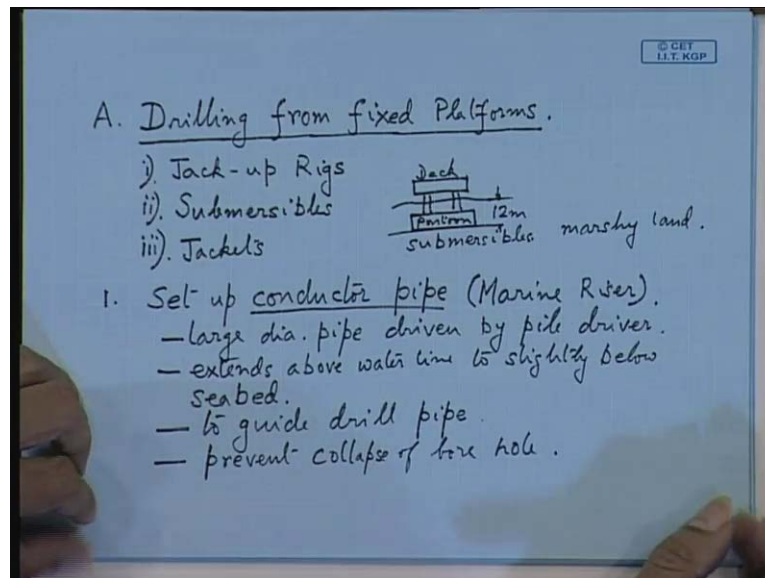 © CET
I.I.T. KGP
A. Drilling from fixed Platforms.
i). Jack-up Rigs
ii). Submersibles
iii). Jackets
Deck
Pontoon
12m
submersibles.
marshy land.
1. Set up conductor pipe (Marine Riser).
— large dia. pipe driven by pile driver.
— extends above water line to slightly below
seabed.
— to guide drill pipe.
— prevent collapse of bore hole.